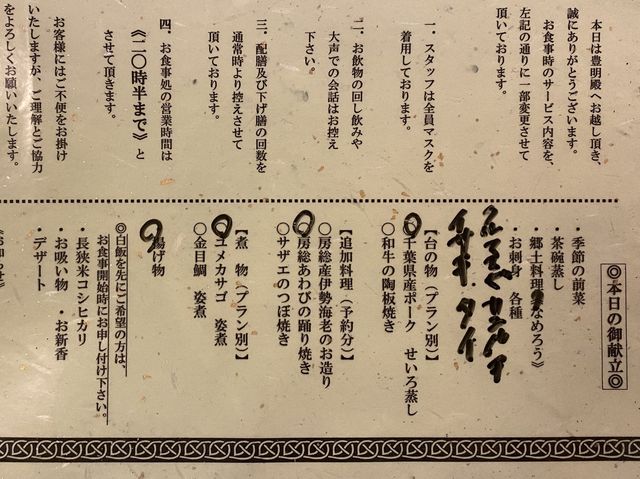 本日は豊明殿へお越し頂き、
誠にありがとうございます。
お食事時のサービス内容を、
左記の通りに一部変更させて
頂いております。
一、スタッフは全員マスクを
着用しております。
二、お飲物の回し飲みや
大声での会話はお控え
下さい。
三、配膳及び下げ膳の回数を
通常時より控えさせて
頂いております。
四、お食事処の営業時間は
《二〇時半まで》と
させて頂きます。
お客様にはご不便をお掛け
いたしますが、ご理解とご協力
をよろしくお願いいたします。
◎本日の御献立◎
・季節の前菜
・茶碗蒸し
・郷土料理《なめろう》
・お刺身 各種
【台の物(プラン別)】
〇千葉県産ポーク せいろ蒸し
〇和牛の陶板焼き
【追加料理(予約分)】
〇房総産伊勢海老のお造り
〇房総あわびの踊り焼き
〇サザエのつぼ焼き
【煮 物(プラン別)】
〇ユメカサゴ 姿煮
〇金目鯛 姿煮
揚げ物
◎白飯を先にご希望の方は、
お食事開始時にお申し付け下さい。
・長狭米コシヒカリ
・お吸い物 ・お新香
・デザート
《お知らせ》